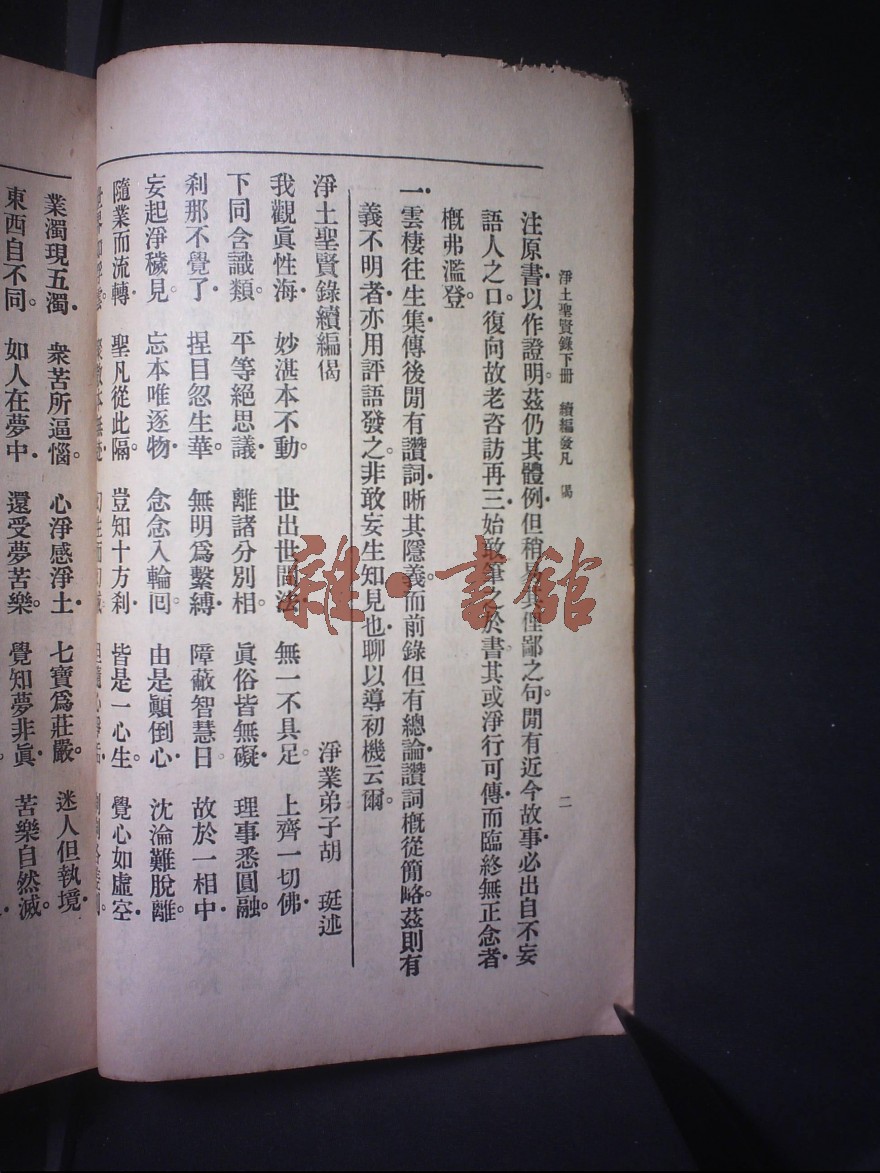 淨土聖賢錄下冊　續編發凡　偈　二
注原書以作證明。茲仍其體例。但稍易其俚鄙之句。閒有近今故事。必出自不妄
語人之口。復向故老咨訪再三。始敢筆之於書。其或淨行可傳。而臨終無正念者。
槪弗濫登。
一雲棲往生集。傳後閒有讚詞。晰其隱義。而前錄但有總論。讚詞槪從簡略。茲則有
義不明者。亦用評語發之。非敢妄生知見也。聊以導初機云爾。
淨土聖賢錄續編偈　淨業弟子胡　珽述
我觀眞性海　妙湛本不動。　世出世間法　無一不具足。　上齊一切佛
下同含識類。　平等絕思議　離諸分別相。　眞俗皆無礙　理事悉圓融。
刹那不覺了　捏目忽生華。　無明爲繫縛　障蔽智慧日。　故於一相中
妄起淨穢見。　忘本唯逐物　念念入輪回。　由是顚倒心　沈淪難脫離。
隨業而流轉　聖凡從此隔。　豈知十方刹　皆是一心生。　覺心如虛空
業濁現五濁　衆苦所逼惱。　心淨感淨土　七寶爲莊嚴。　迷人但執境
東西自不同。　如人在夢中　還受夢苦樂。　覺知夢非眞　苦樂自然滅。
雜·書館